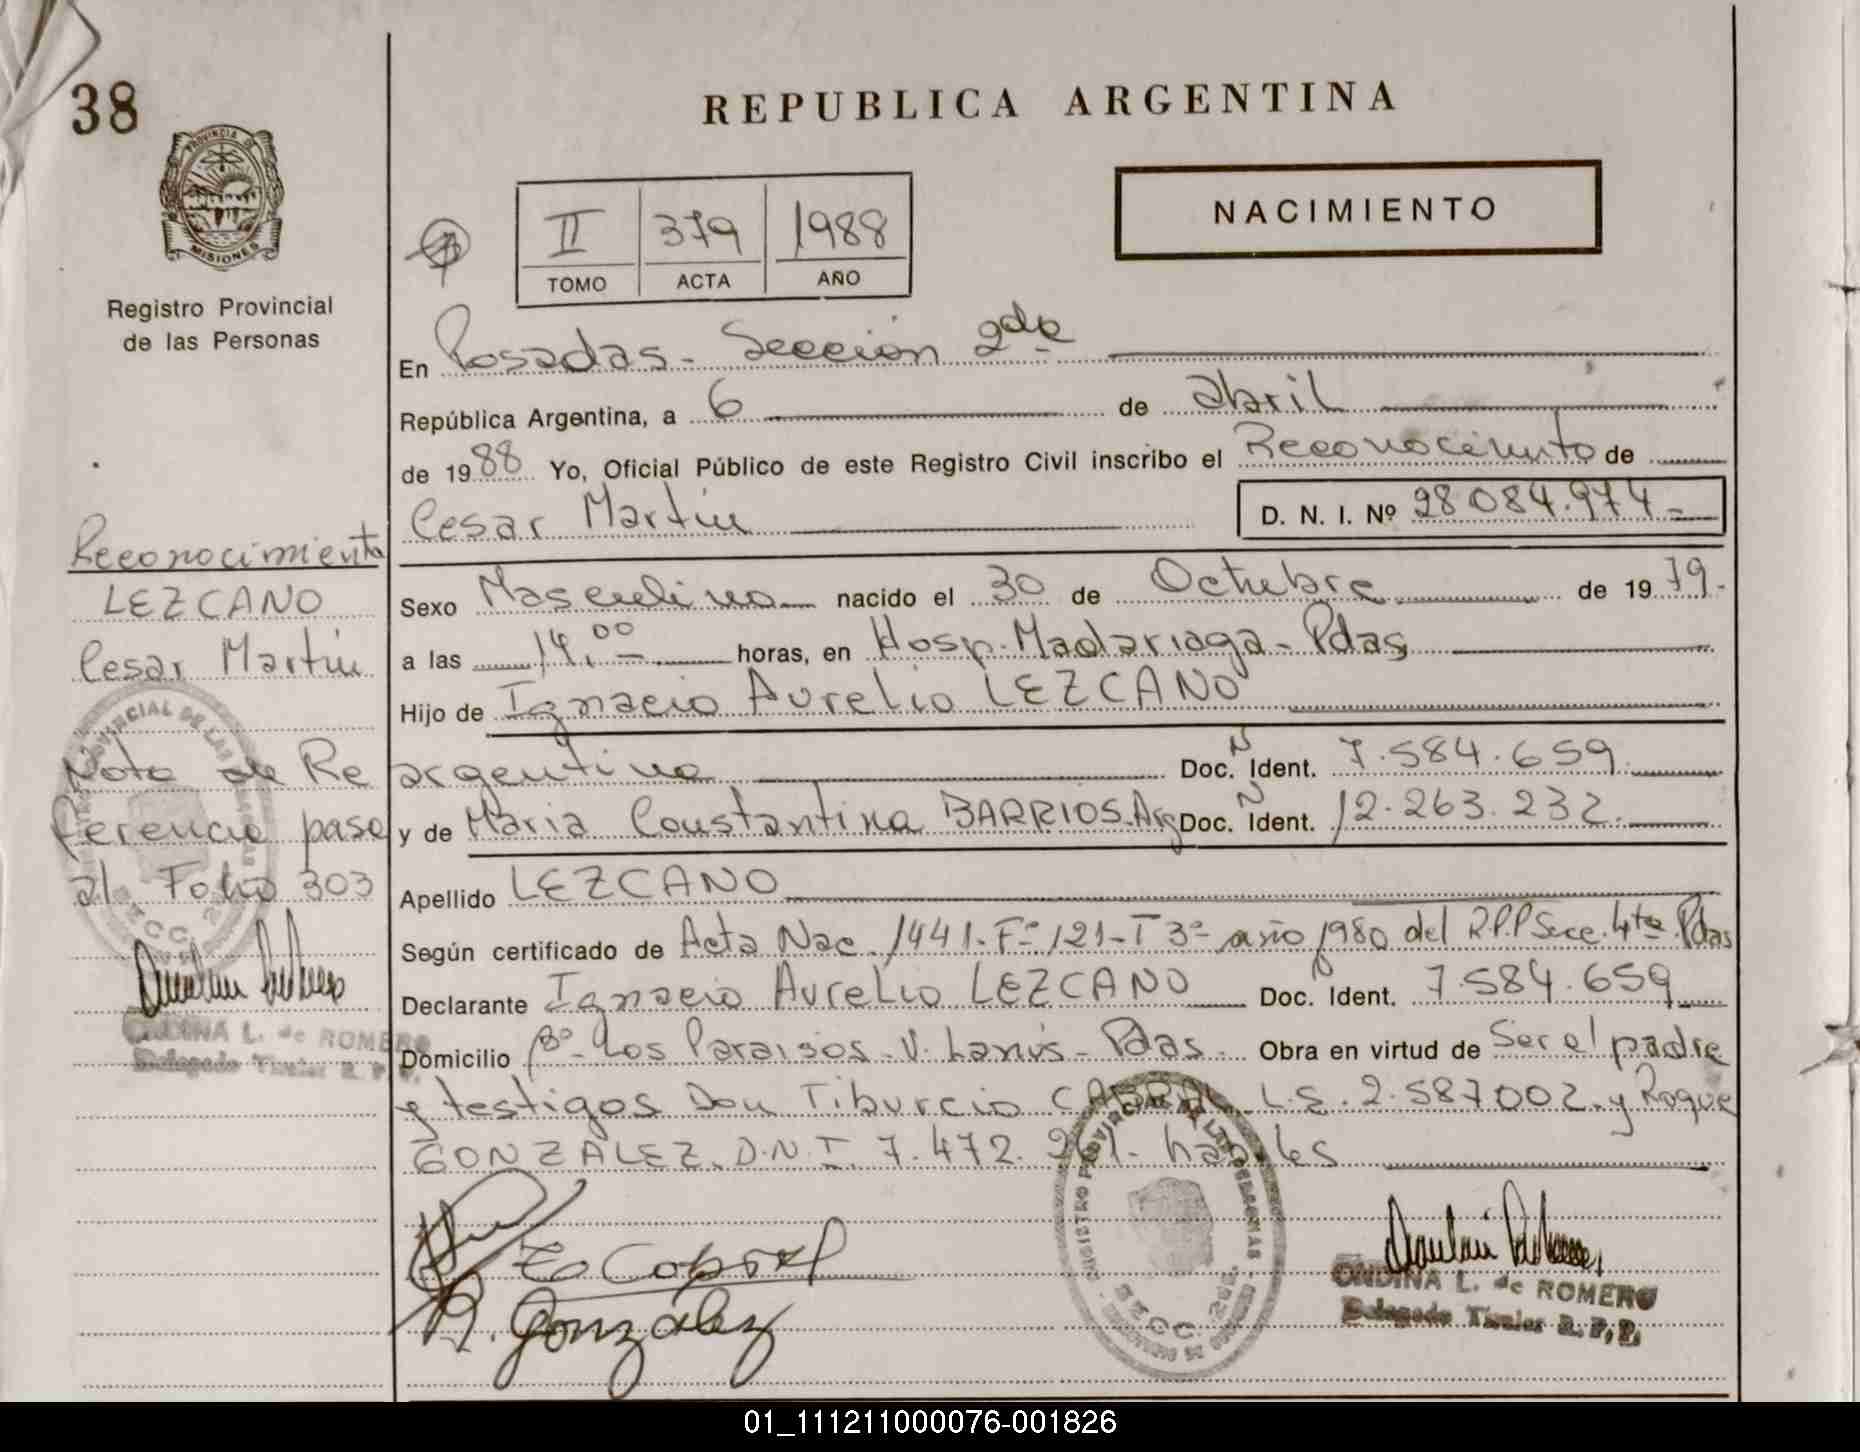 38
REPUBLICA ARGENTINA
PROVINCIA DE
MISIONES
NACIMIENTO
II 379 1988
TOMO ACTA AÑO
Registro Provincial
de las Personas
En Posadas - Sección 2da
República Argentina, a 6 de abril
de 1988 Yo, Oficial Público de este Registro Civil inscribo el Reconocimiento de
Cesar Martín D. N. I. Nº 28084.974-
Sexo Masculino nacido el 30 de Octubre de 1979.
a las 14,00 horas, en Hosp. Madariaga - Pdas,
Hijo de Ignacio Aurelio LEZCANO
argentino Doc. N Ident. 7.584.659
y de Maria Constantina BARRIOS. Arg Doc. N Ident. 12.263.232.
Apellido LEZCANO
Según certificado de Acta Nac. 1441-Fº 121-T 3º año 1980 del R.P.P Secc. 4ta Pdas
Declarante Ignacio Aurelio LEZCANO Doc. N Ident. 7.584.659
Domicilio Bº Los Paraisos - V. Lanús - Pdas. Obra en virtud de Ser el padre
y testigos Don Tiburcio CABRAL L.E. 2.587002. y Roque
GONZALEZ. D.N.I. 7.472. habiles
R. González
ONDINA L. de ROMERO
Delegado Titular R. P. P.
Reconocimiento
LEZCANO
Cesar Martín
Nota de Re
ferencia pase
al Folio 303
ONDINA L. de ROMERO
Delegado Titular R. P. P.
01_111211000076-001826